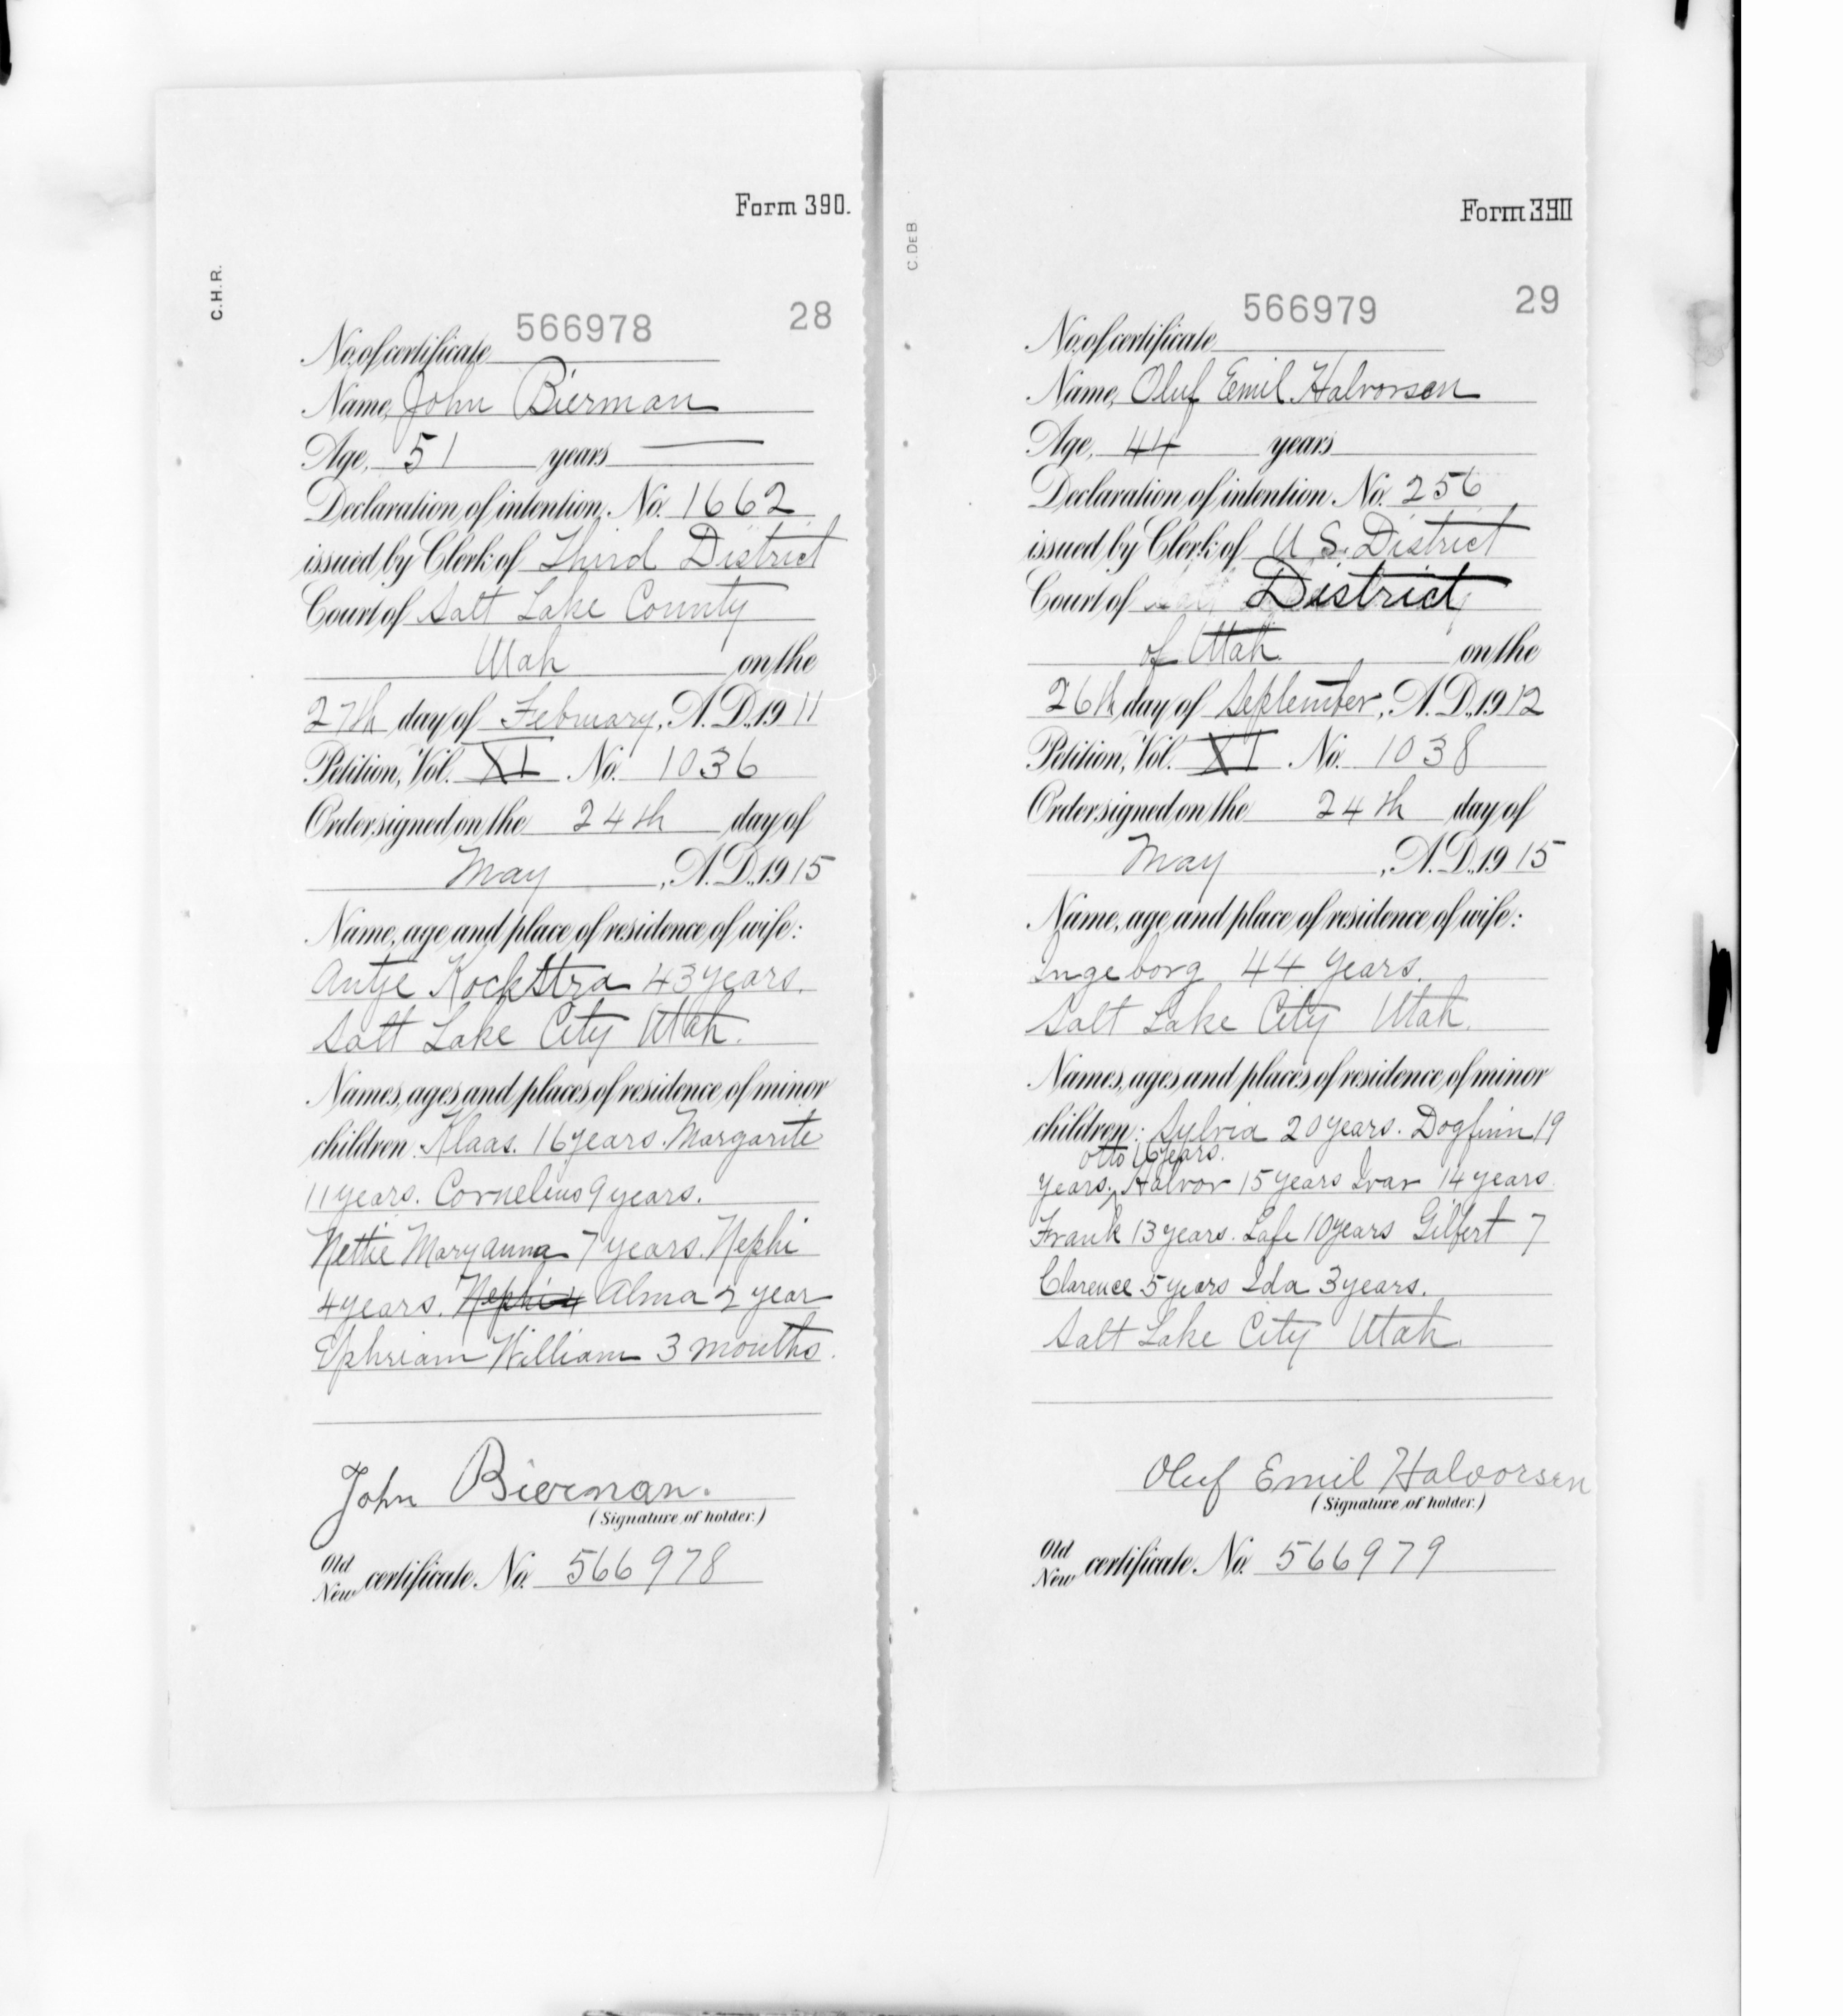 Form 390.
C.H.R.
566978 28
No. of certificate
Name, John Bierman
Age, 51 years
Declaration of intention, No. 1662
issued by Clerk of Third District
Court of Salt Lake County
Utah on the
27th day of February, A.D. 1911
Petition, Vol. XI No. 1036
Order signed on the 24th day of
May, A.D. 1915
Name, age and place of residence of wife:
Antje Kockstra 43 years.
Salt Lake City Utah.
Names, ages and places of residence of minor
children: Klaas. 16 years. Margarite
11 years. Cornelius 9 years.
Nettie Maryanna 7 years. Nephi
4 years. Nephi 4 Alma 2 year
Ephriam William 3 months.
John Bierman.
(Signature of holder.)
Old
New certificate No. 566978
Form 390
C.DEB
566979 29
No. of certificate
Name, Oluf Emil Halvorsen
Age, 44 years
Declaration of intention No. 256
issued by Clerk of U S. District
Court of District
of Utah on the
26th day of September, A.D. 1912
Petition, Vol. XI No. 1038
Order signed on the 24th day of
May, A.D. 1915
Name, age and place of residence of wife:
Ingeborg 44 years.
Salt Lake City Utah.
Names, ages and places of residence of minor
children: Sylvia 20 years. Dogfinn 19
Otto 16 years.
years. Halvor 15 years Ivar 14 years
Frank 13 years. Lafe 10 years Gilbert 7
Clarence 5 years Ida 3 years.
Salt Lake City Utah.
Oluf Emil Halvorsen
(Signature of holder.)
Old
New certificate No. 566979